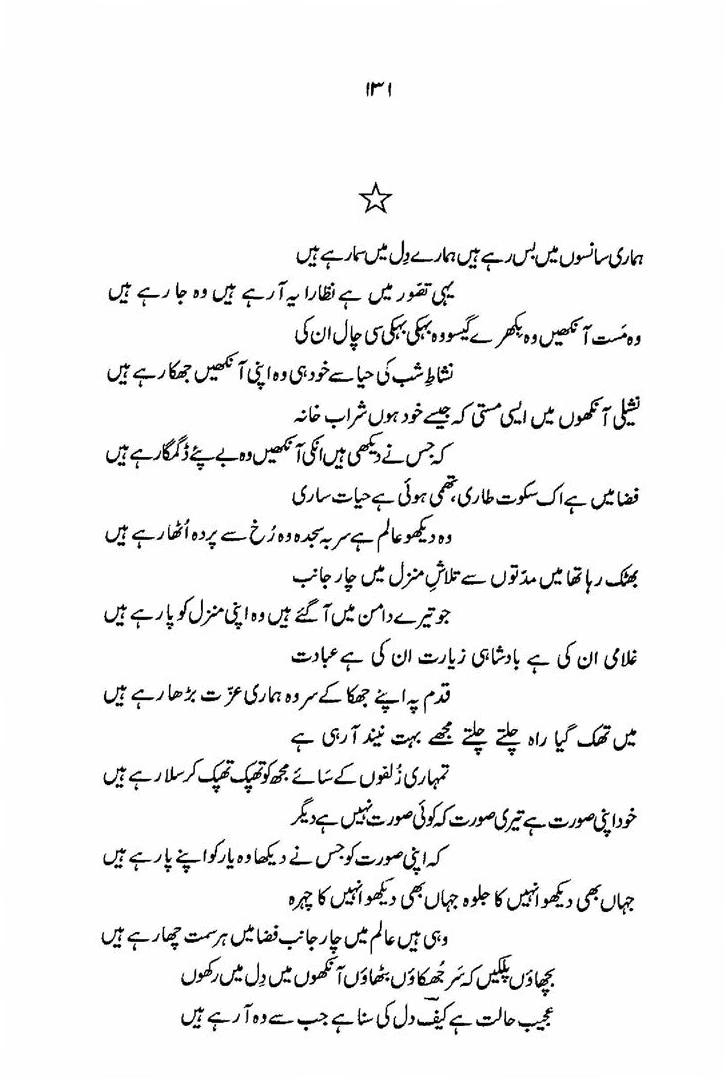 ۱۳۱
ہماری سانسوں میں بس رہے ہیں ہمارے دِل میں سما رہے ہیں
یہی تصّور میں ہے نظارا یہ آ رہے ہیں وہ جا رہے ہیں
وہ مَست آنکھیں وہ بِکھرے گیسو وہ بہکی بہکی سی چال ان کی
نشاطِ شب کی حیا سے خود ہی وہ اپنی آنکھیں جھکا رہے ہیں
نشیلی آنکھوں میں ایسی مستی کہ جیسے خود ہوں شراب خانہ
کہ جس نے دیکھی ہیں انکی آنکھیں وہ بے پئے ڈگمگا رہے ہیں
فضا میں ہے اک سکوت طاری، تھمی ہوئی ہے حیات ساری
وہ دیکھو عالم ہے سر بہ سجدہ وہ رُخ سے پردہ اُٹھا رہے ہیں
بھٹک رہا تھا میں مدّتوں سے تلاشِ منزل میں چار جانب
جو تیرے دامن میں آ گئے ہیں وہ اپنی منزل کو پا رہے ہیں
غلامی ان کی ہے بادشاہی زیارت ان کی ہے عبادت
قدم پہ اپنے جھکا کے سر وہ ہماری عزّت بڑھا رہے ہیں
میں تھک گیا راہ چلتے چلتے مجھے بہت نیند آ رہی ہے
تمہاری زُلفوں کے سَائے مجھ کو تھپک تھپک کر سلا رہے ہیں
خود اپنی صورت ہے تیری صورت کہ کوئی صورت نہیں ہے دیگر
کہ اپنی صورت کو جس نے دیکھا وہ یار کو اپنے پا رہے ہیں
جہاں بھی دیکھو انہیں کا جلوہ جہاں بھی دیکھو انہیں کا چہرہ
وہی ہیں عالم میں چار جانب فضا میں ہر سمت چھا رہے ہیں
بچھاؤں پلکیں کہ سَر جُھکاؤں بٹھاؤں آنکھوں میں دِل میں رکھوں
عجیب حالت ہے کیفؔ دل کی سنا ہے جب سے وہ آ رہے ہیں